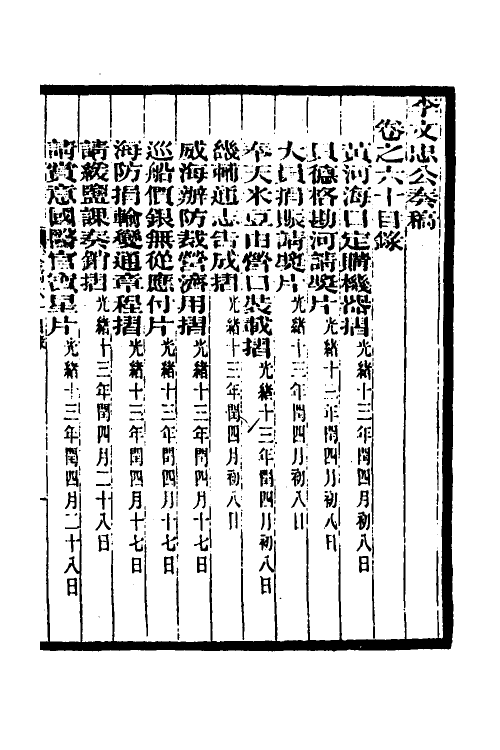 李文忠公奏稿
卷之六十目錄
黃河海口定購機器摺光緒十三年閏四月初八日
貝德格勘河請獎片光緒十三年閏四月初八日
大員捐賑請獎片光緒十三年閏四月初八日
奉天米豆由營口裝載摺光緒十三年閏四月初八日
畿輔通志告成摺光緒十三年閏四月初八日
威海辦防裁營濟用摺光緒十三年閏四月十七日
巡船價銀無從應付片光緒十三年閏四月十七日
海防捐輸變通章程摺光緒十三年閏四月十七日
請緩鹽課奏銷摺光緒十三年閏四月二十八日
請賞意國醫官寶星片光緒十三年閏四月二十八日